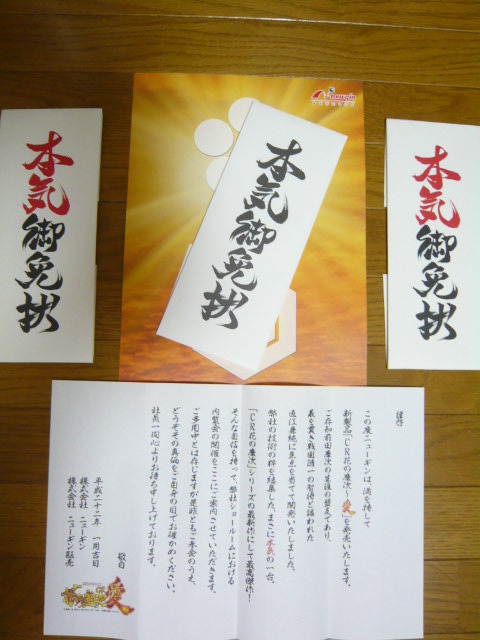 本気御免状
本気御免状
本気御免状
謹啓
この度ニューギンは、満を持して
新製品「CR花の慶次〜愛」を発売いたします。
ご存知前田慶次の生涯の盟友であり、
義を貫き戦国随一の智将と謳われた
直江兼続に焦点を当てて開発いたしました。
弊社の技術の粋を結集した、まさに本気の一台。
「CR花の慶次」シリーズの最新作にして最高傑作!
そんな自信を持って、弊社ショールームにおける
内覧会の開催をここにご案内させていただきます。
ご多用中とは存じますが是非ともご来会のうえ、
どうぞその真価をご自身の目でお確かめください。
社員一同心よりお待ち申し上げております。
敬白
平成二十二年 一月吉日
株式会社 ニューギン
株式会社 ニューギン販売